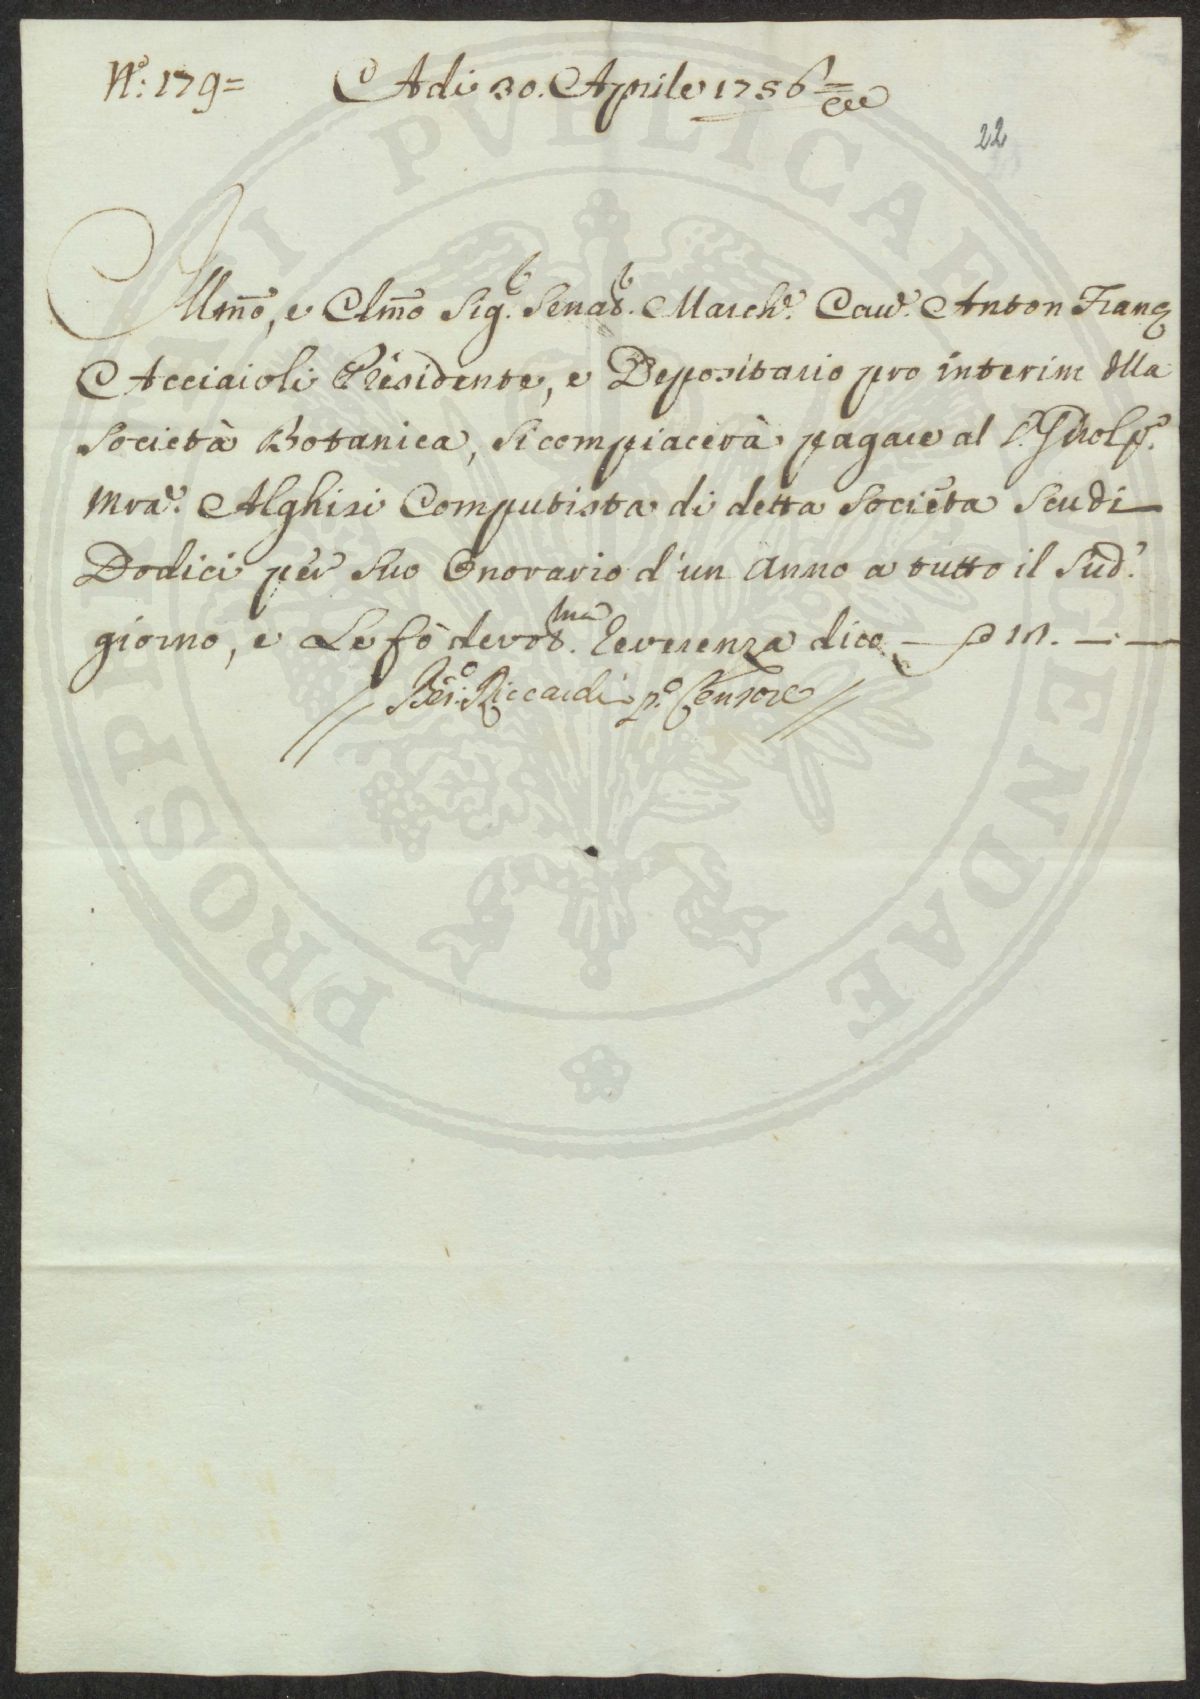 N.º: 179=
Adi 30. Aprile 1756=
22
Illmo, e Clmo Sig.e Senat.e March.e Cav.e Anton Franc
Acciaioli Presidente, e Depositario pro interim dlla
Società Botanica, si compiacerà pagare al S.
Alghisi Computista di detta Società Scudi
Dodici per suo Onorario d'un Anno a tutto il Sud.o
giorno, e Le fò devot.ma Reverenza dico — 12. — : —
// Ber.o: Riccardi p.o Censore //
PROSPERITATI PUBLICAE AUGENDAE